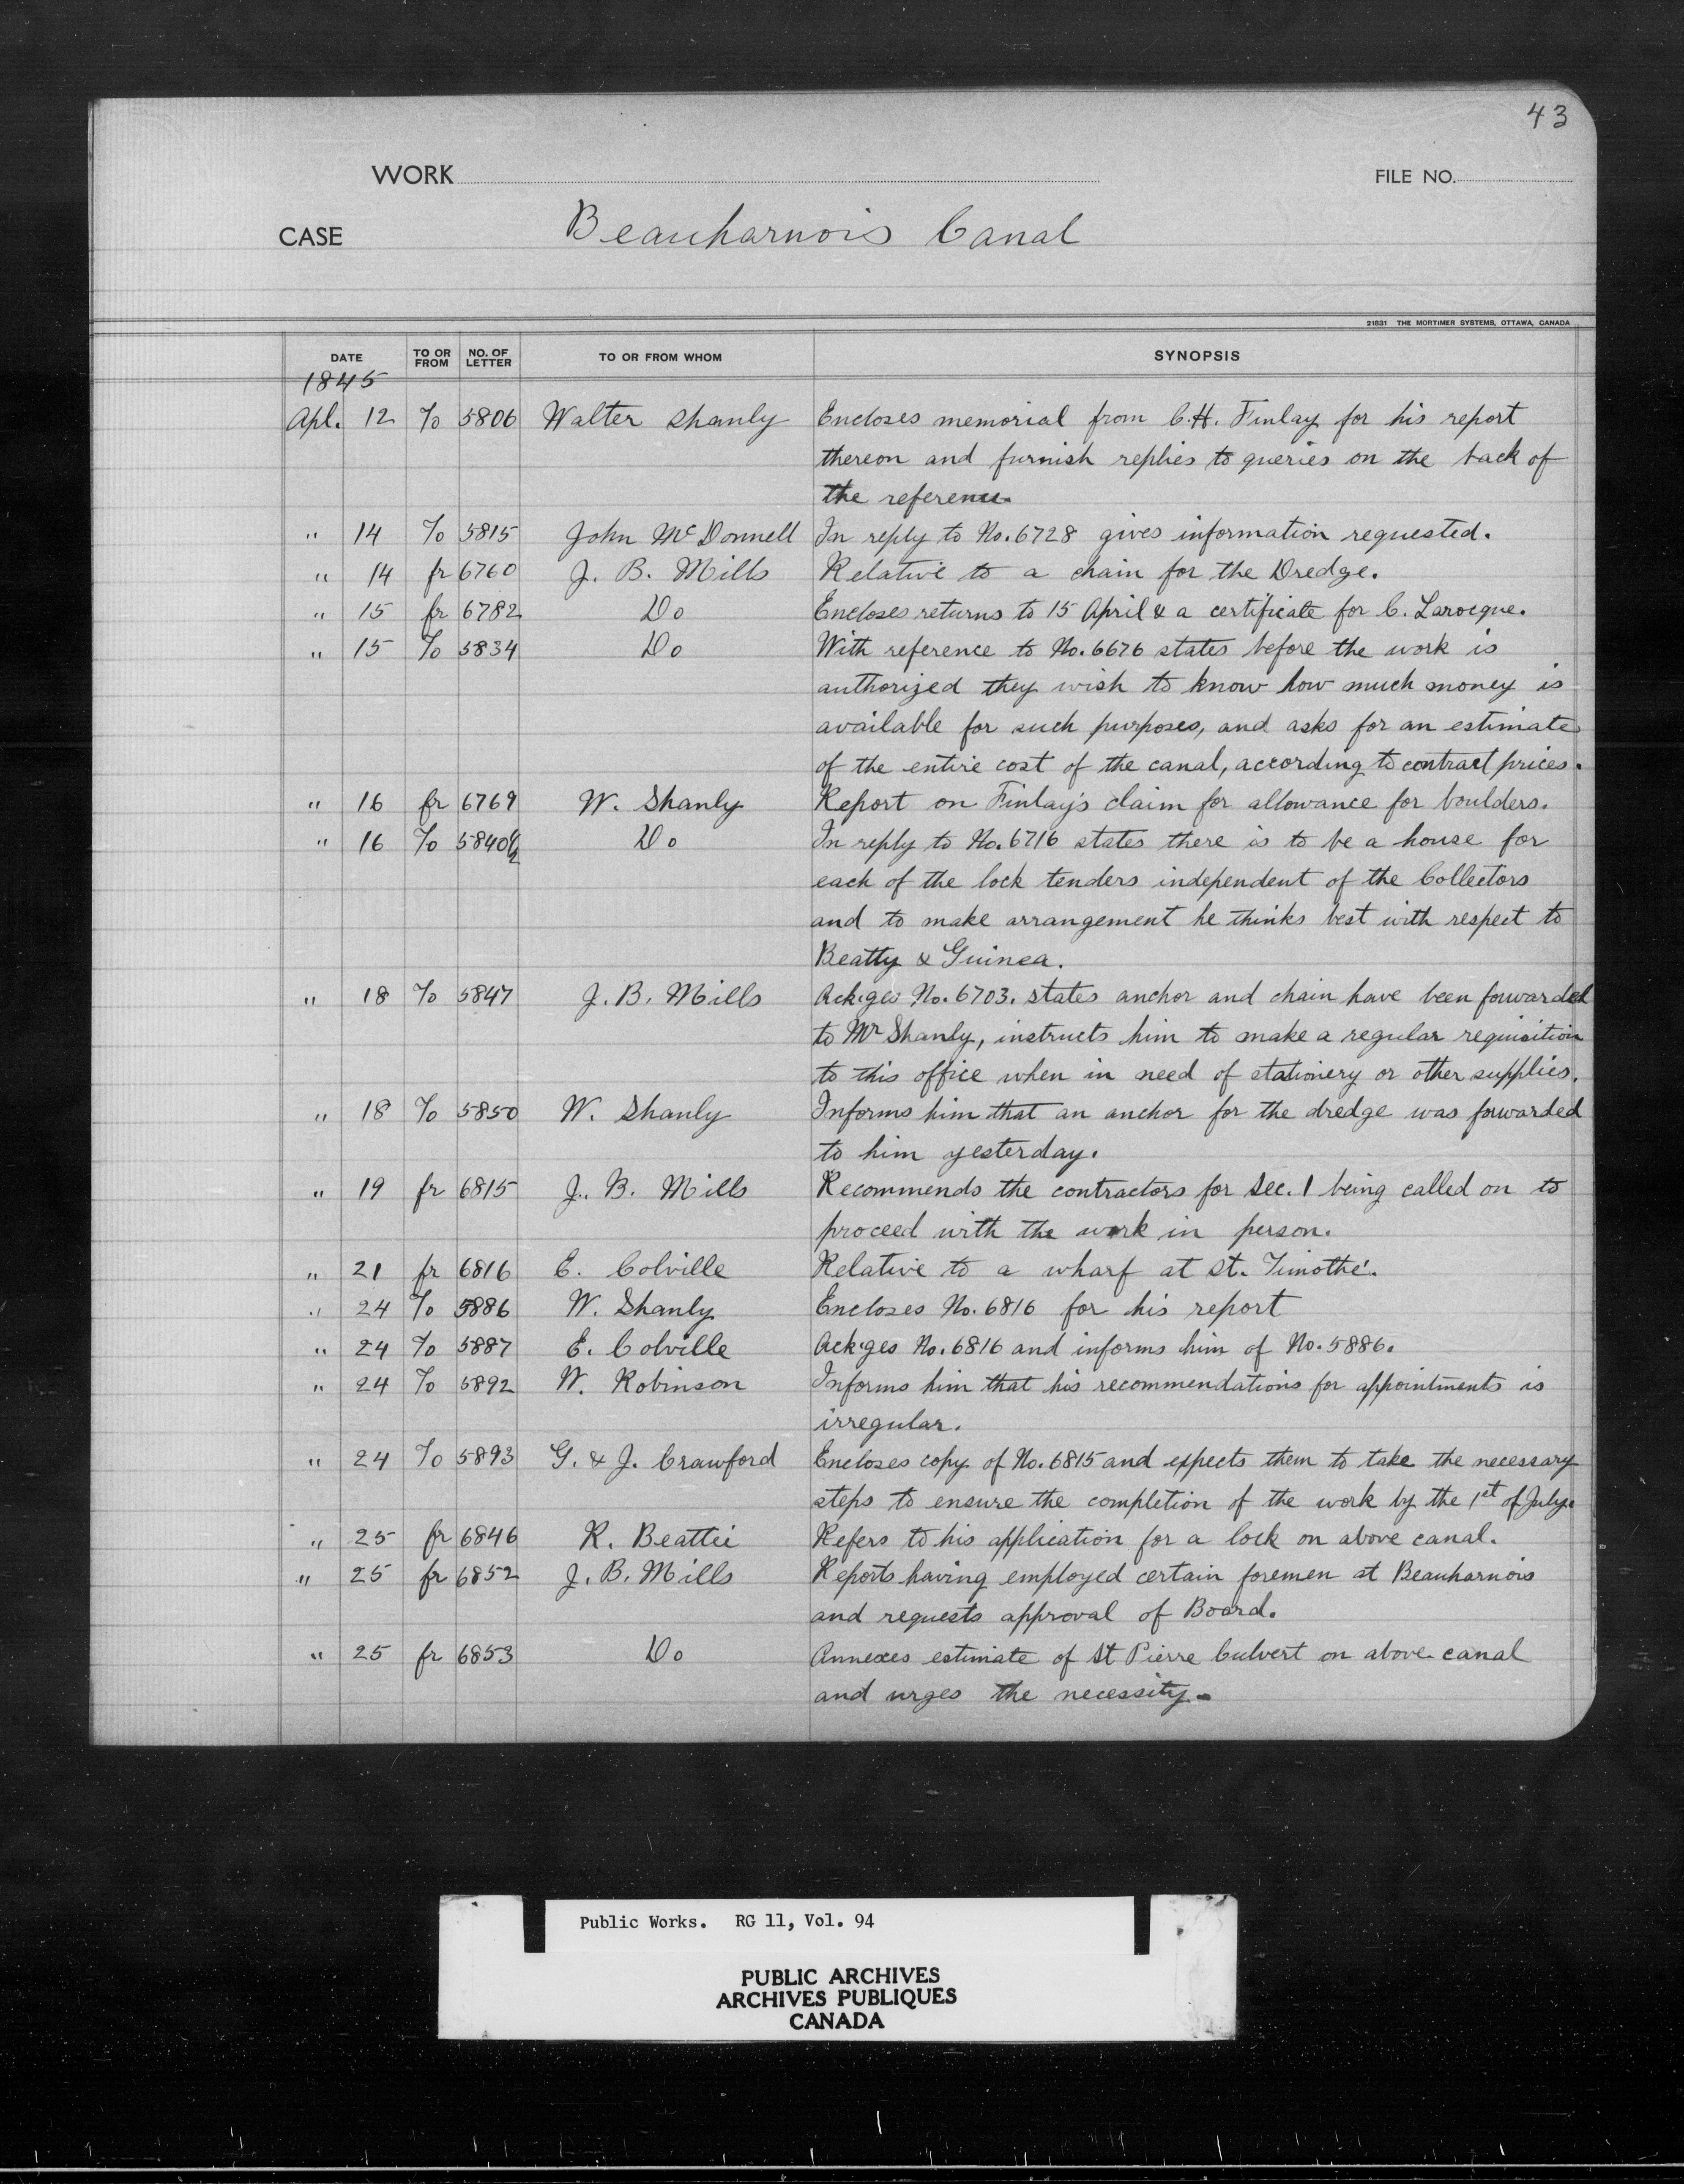 43
WORK
FILE NO.
CASE Beauharnois Canal
21831 THE MORTIMER SYSTEMS, OTTAWA, CANADA
DATE TO OR FROM NO. OF LETTER TO OR FROM WHOM SYNOPSIS
1845
Apl. 12 To 5806 Walter Shanly Encloses memorial from C.H. Finlay for his report
thereon and furnish replies to queries on the back of
the reference.
" 14 To 5815 John McDonnell In reply to No. 6728 gives information requested.
" 14 fr 6760 J. B. Mills Relative to a chain for the Dredge.
" 15 fr 6782 Do Encloses returns to 15 April & a certificate for C. Larocque.
" 15 To 5834 Do With reference to No. 6676 states before the work is
authorized they wish to know how much money is
available for such purposes, and asks for an estimate
of the entire cost of the canal, according to contract prices.
" 16 fr 6769 W. Shanly Report on Finlay's claim for allowance for boulders.
" 16 To 5840½ Do In reply to No. 6716 states there is to be a house for
each of the lock tenders independent of the Collectors
and to make arrangement he thinks best with respect to
Beatty & Guinea.
" 18 To 5847 J. B. Mills Ack'ges No. 6703. states anchor and chain have been forwarded
to Mr Shanly, instructs him to make a regular requisition
to this office when in need of stationery or other supplies.
" 18 To 5850 W. Shanly Informs him that an anchor for the dredge was forwarded
to him yesterday.
" 19 fr 6815 J. B. Mills Recommends the contractors for Sec. 1 being called on to
proceed with the work in person.
" 21 fr 6816 E. Colville Relative to a wharf at St. Timothé.
" 24 To 5886 W. Shanly Encloses No. 6816 for his report
" 24 To 5887 E. Colville Ack'ges No. 6816 and informs him of No. 5886.
" 24 To 5892 W. Robinson Informs him that his recommendations for appointments is
irregular.
" 24 To 5893 G. & J. Crawford Encloses copy of No. 6815 and expects them to take the necessary
steps to ensure the completion of the work by the 1st of July.
" 25 fr 6846 R. Beattie Refers to his application for a lock on above canal.
" 25 fr 6852 J. B. Mills Reports having employed certain foremen at Beauharnois
and requests approval of Board.
" 25 fr 6853 Do Annexes estimate of St Pierre Culvert on above canal
and urges the necessity.
Public Works. RG 11, Vol. 94
PUBLIC ARCHIVES
ARCHIVES PUBLIQUES
CANADA